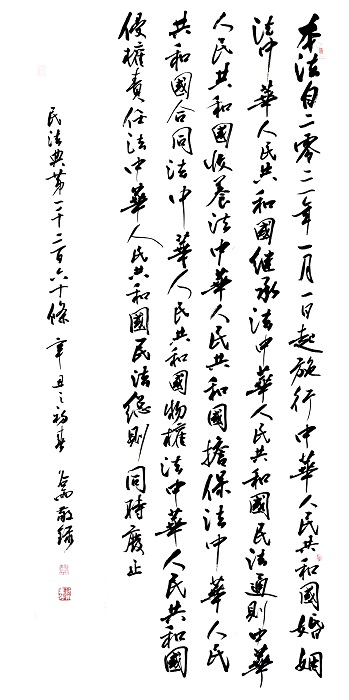 本法自二零二一年一月一日起施行中華人民共和國婚姻
法中華人民共和國继承法中華人民共和國民法通則中華
人民共和國收養法中華人民共和國擔保法中華人民
共和國合同法中華人民共和國物權法中華人民共和國
侵權責任法中華人民共和國民法總則同時廢止
民法典第一千二百六十條 辛丑之初春 敬録